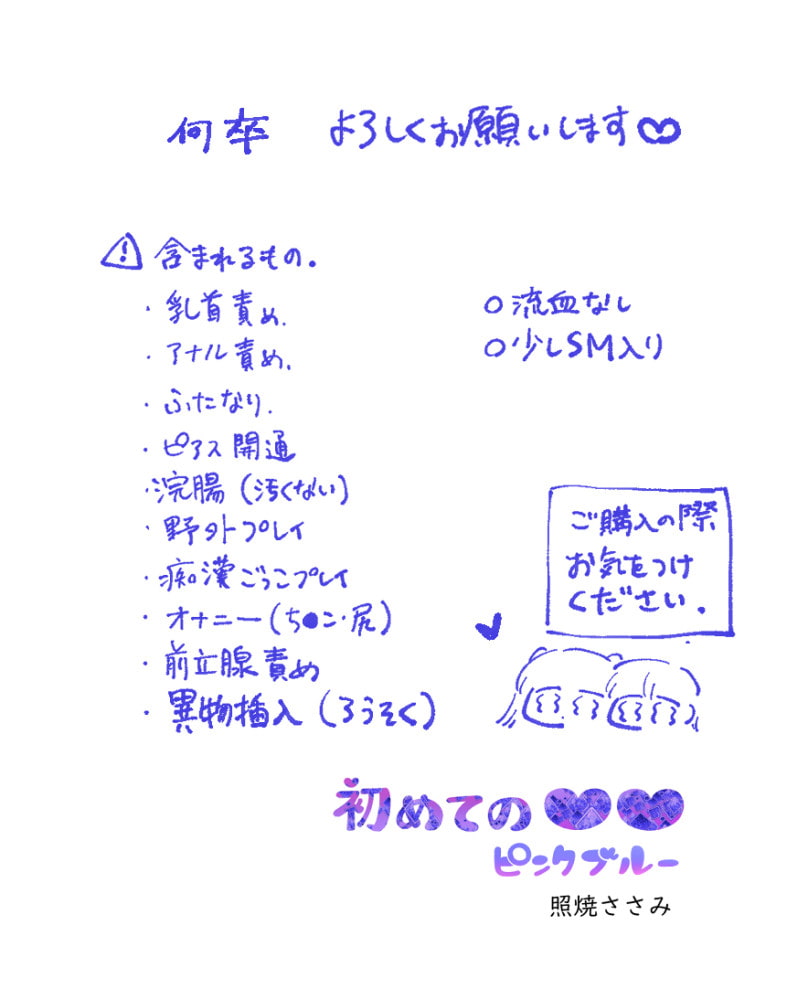 何卒 よろしくお願いします♡
⚠ 含まれるもの.
・乳首責め.
・アナル責め.
・ふたなり.
・ピアス開通
・浣腸(汚くない)
・野外プレイ
・痴漢ごっこプレイ
・オナニー(ち●コ・尻)
・前立腺責め
・異物挿入(ろうそく)
○流血なし
○少しSM入り
ご購入の際
お気をつけ
ください.
初めての♥♥
ピンクブルー
照焼ささみ